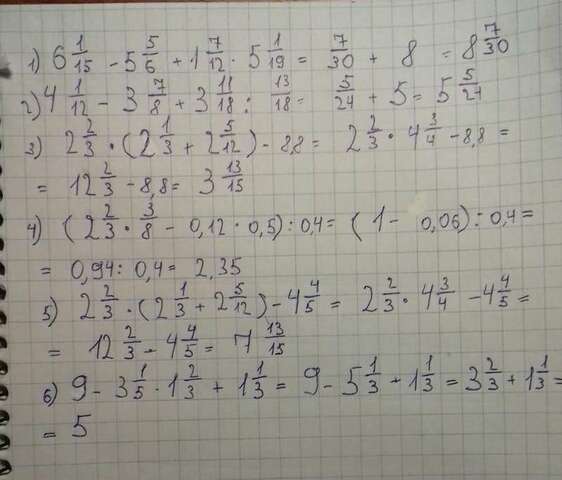 1) 6 1/15 - 5 5/6 + 1 7/12 · 5 1/19 = 7/30 + 8 = 8 7/30
2) 4 1/12 - 3 7/8 + 3 11/18 : 13/18 = 5/24 + 5 = 5 5/24
3) 2 2/3 · (2 1/3 + 2 5/12) - 8,8 = 2 2/3 · 4 3/4 - 8,8 =
= 12 2/3 - 8,8 = 3 13/15
4) (2 2/3 · 3/8 - 0,12 · 0,5) : 0,4 = (1 - 0,06) : 0,4 =
= 0,94 : 0,4 = 2,35
5) 2 2/3 · (2 1/3 + 2 5/12) - 4 4/5 = 2 2/3 · 4 3/4 - 4 4/5 =
= 12 2/3 - 4 4/5 = 7 13/15
6) 9 - 3 1/5 · 1 2/3 + 1 1/3 = 9 - 5 1/3 + 1 1/3 = 3 2/3 + 1 1/3 =
= 5